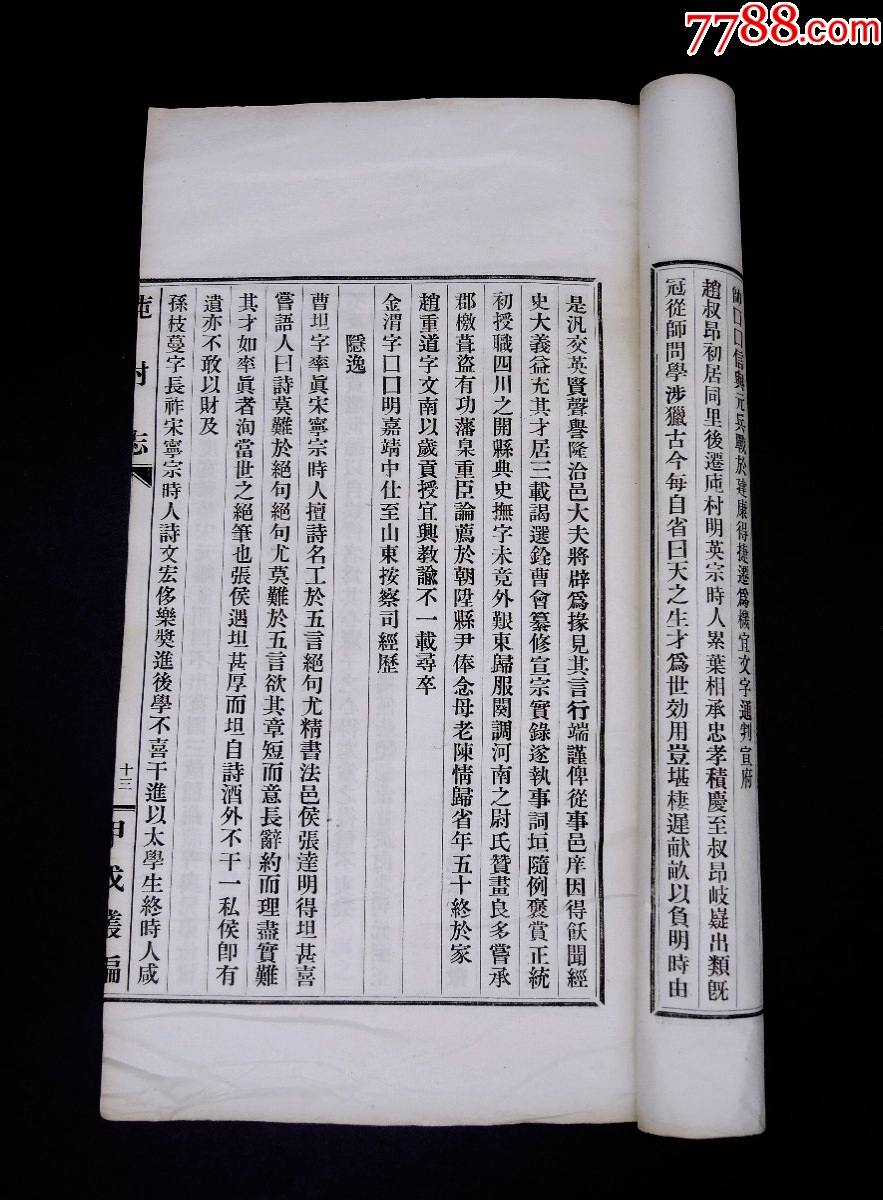 7788.com
師口口信與元兵戰於建康得捷遷為機宜文字通判宣府
趙叔昂初居同里後遷庉村明英宗時人累葉相承忠孝積慶至叔昂岐嶷出類旣
冠從師問學涉獵古今每自省曰天之生才爲世効用豈堪棲遲畎畝以負明時由
是汎交英賢聲譽隆洽邑大夫將辟爲掾見其言行端謹俾從事邑庠因得飫聞經
史大義益充其才居三載謁選銓曹會纂修宣宗實錄遂執事詞垣隨例褒賞正統
初授職四川之開縣典史撫字未竟外艱東歸服闋調河南之尉氏贊畫良多嘗承
郡檄葺盜有功藩臬重臣論薦於朝陞縣尹俸念母老陳情歸省年五十終於家
趙重道字文南以歲貢授宜興教諭不一載尋卒
金渭字口口明嘉靖中仕至山東按察司經歷
隱逸
曹坦字率眞宋寧宗時人擅詩名工於五言絕句尤精書法邑侯張達明得坦甚喜
嘗語人曰詩莫難於絕句絕句尤莫難於五言欲其章短而意長辭約而理盡實難
其才如率眞者洵當世之絕筆也張侯遇坦甚厚而坦自詩酒外不干一私侯卽有
遺亦不敢以財及
孫枝蔓字長祚宋寧宗時人詩文宏侈樂獎進後學不喜干進以太學生終時人咸
庉村志
十三
甲戌叢編